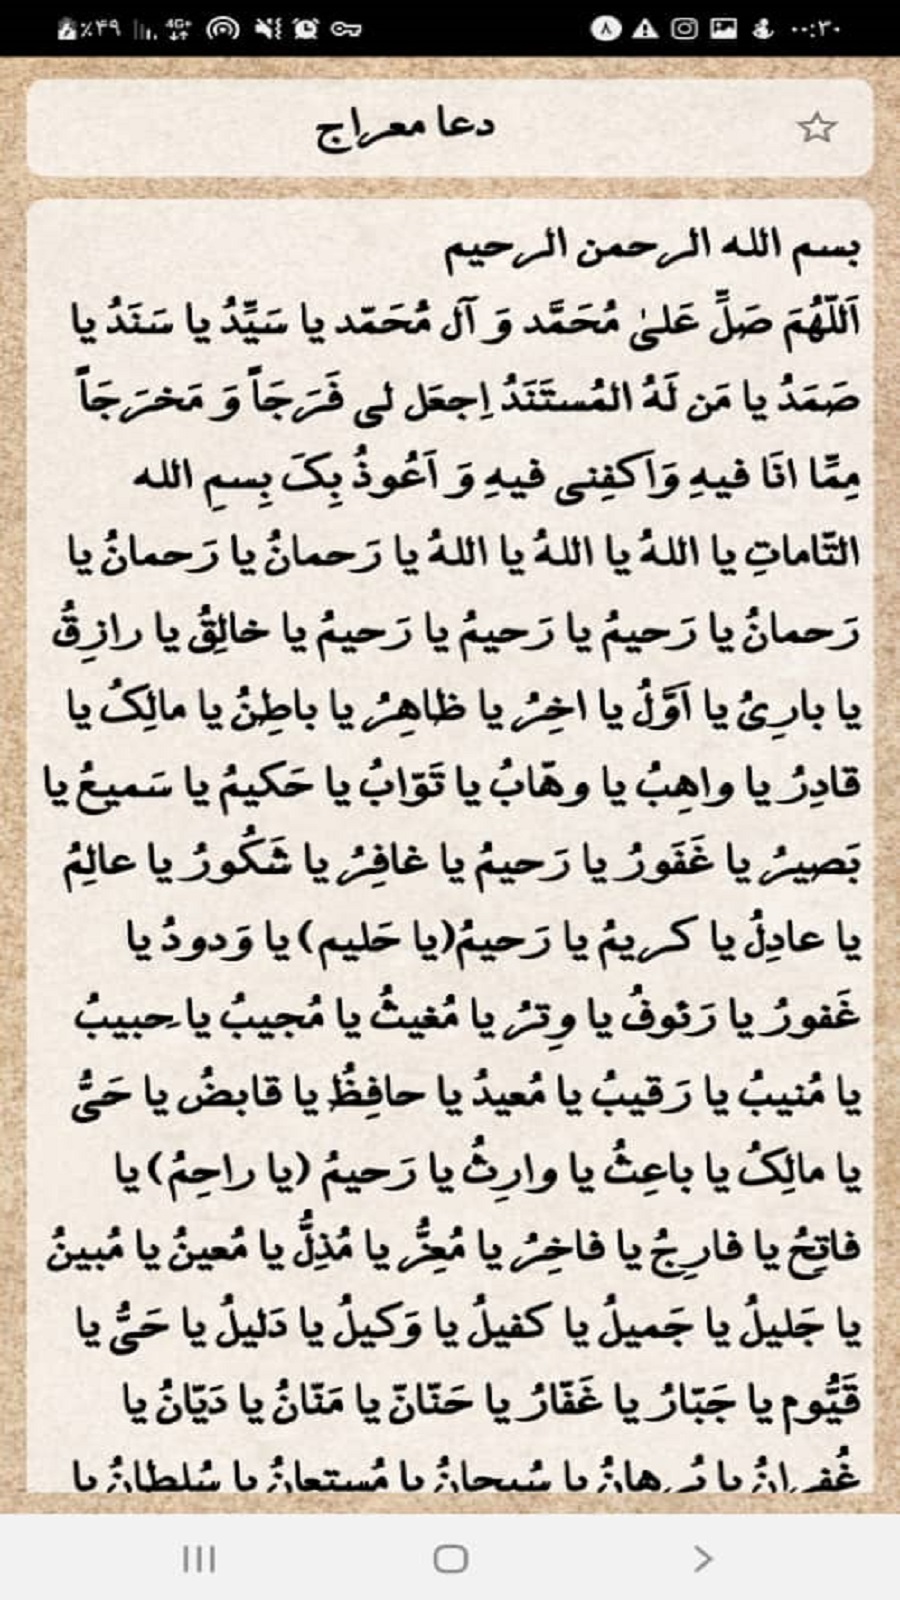 ۰۰:۳۰ ۸ 4G+ ٪۴۹
دعا معراج
بسم الله الرحمن الرحیم
اَللّهُمَ صَلِّ عَلیٰ مُحَمَّد وَ آل مُحَمّد یا سَیِّدُ یا سَنَدُ یا
صَمَدُ یا مَن لَهُ المُستَنَدُ اِجعَل لی فَرَجَاً وَ مَخرَجَاً
مِمّا انَا فیهِ وَاَکفِنی فیهِ وَ اَعُوذُ بِکَ بِسمِ الله
التّاماتِ یا اللهُ یا اللهُ یا اللهُ یا رَحمانُ یا رَحمانُ یا
رَحمانُ یا رَحیمُ یا رَحیمُ یا رَحیمُ یا خالِقُ یا رازِقُ
یا بارِیُ یا اَوَّلُ یا اخِرُ یا ظاهِرُ یا باطِنُ یا مالِکُ یا
قادِرُ یا واهِبُ یا وهّابُ یا تَوّابُ یا حَکیمُ یا سَمیعُ یا
بَصیرُ یا غَفَورُ یا رَحیمُ یا غافِرُ یا شَکُورُ یا عالِمُ
یا عادِلُ یا کریمُ یا رَحیمُ(یا حَلیم) یا وَدودُ یا
غَفورُ یا رَئوفُ یا وِترُ یا مُغیثُ یا مُجیبُ یا حبیبُ
یا مُنیبُ یا رَقیبُ یا مُعیدُ یا حافِظُ یا قابضُ یا حَیُّ
یا مالِکُ یا باعِثُ یا وارِثُ یا رَحیمُ (یا راحِمُ) یا
فاتِحُ یا فارِجُ یا فاخِرُ یا مُعِزُّ یا مُذِلُّ یا مُعینُ یا مُبینُ
یا جَلیلُ یا جَمیلُ یا کفیلُ یا وَکیلُ یا دَلیلُ یا حَیُّ یا
قَیُّوم یا جَبّارُ یا غَفّارُ یا حَنّانّ یا مَنّانُ یا دَیّانُ یا
غُفرانُ یا بُرهانُ یا سُبحانُ یا مُستعانُ یا سُلطانُ یا